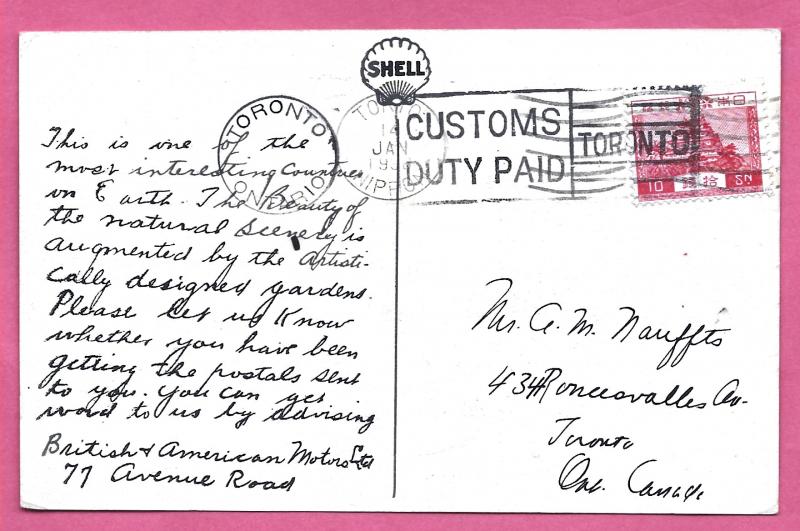 SHELL
TORONTO
ONTARIO
TOKIO
14
JAN
NIPPON
CUSTOMS
DUTY PAID
TORONTO
10 拾 SN
This is one of the
most interesting Countries
on Earth. The Beauty of
the natural Scenery is
augmented by the Artisti-
cally designed gardens.
Please let us Know
whether you have been
getting the postals sent
to you. You can get
word to us by advising
British & American Motors Ltd
77 Avenue Road
Mr. A. M.
434 Roncesvalles Av.
Toronto
Ont. Canada